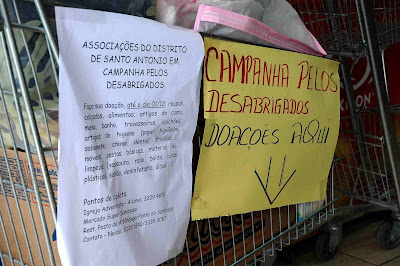 ASSOCIAÇÕES DO DISTRITO
DE SANTO ANTONIO EM
CAMPANHA PELOS
DESABRIGADOS
Faça sua doação, até o dia 00/12: roupas,
calçados, alimentos, artigos de cama,
mesa, banho, travesseiros, colchões,
artigos de higiene (papel higiênico,
sabonete, creme dental, fraldas),
móveis, cestas básicas, material de
limpeza (vassoura, rodo, balde, luvas
plásticas, sabão, desinfetante, álcool
Pontos de coleta
Igreja Adventista - Alunos
Mercado Super Sampaio
Rest. Posto da
Contato - Neide:
CAMPANHA PELOS
DESABRIGADOS
DOAÇÕES AQUI